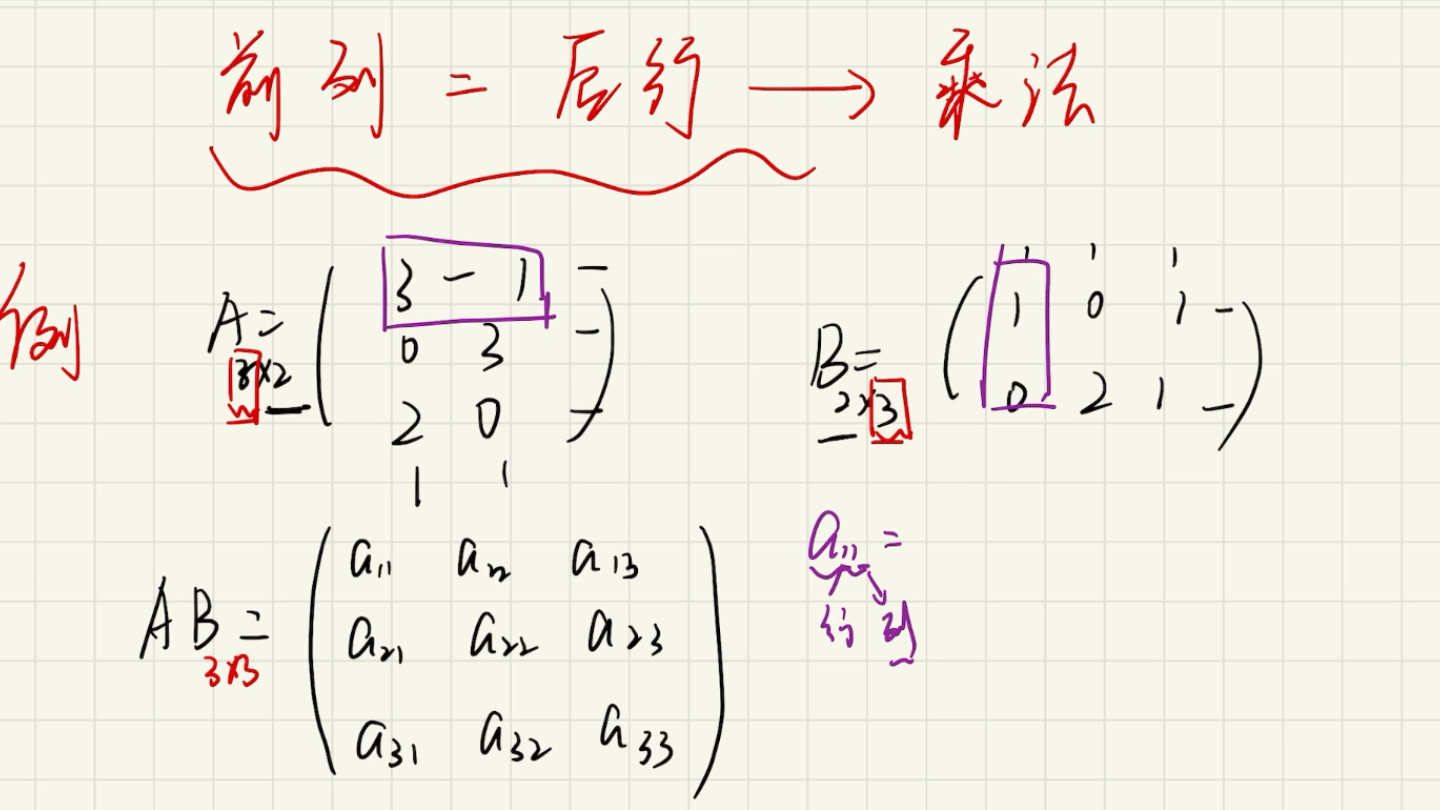 前列 = 后行 → 乘法
例
A= ( 3 -1
0 3
2 0 )
3×2
B= ( 1 0 1
0 2 1 )
2×3
AB= ( a₁₁ a₁₂ a₁₃
a₂₁ a₂₂ a₂₃
a₃₁ a₃₂ a₃₃ )
3×3
a₁₁ =
行 列